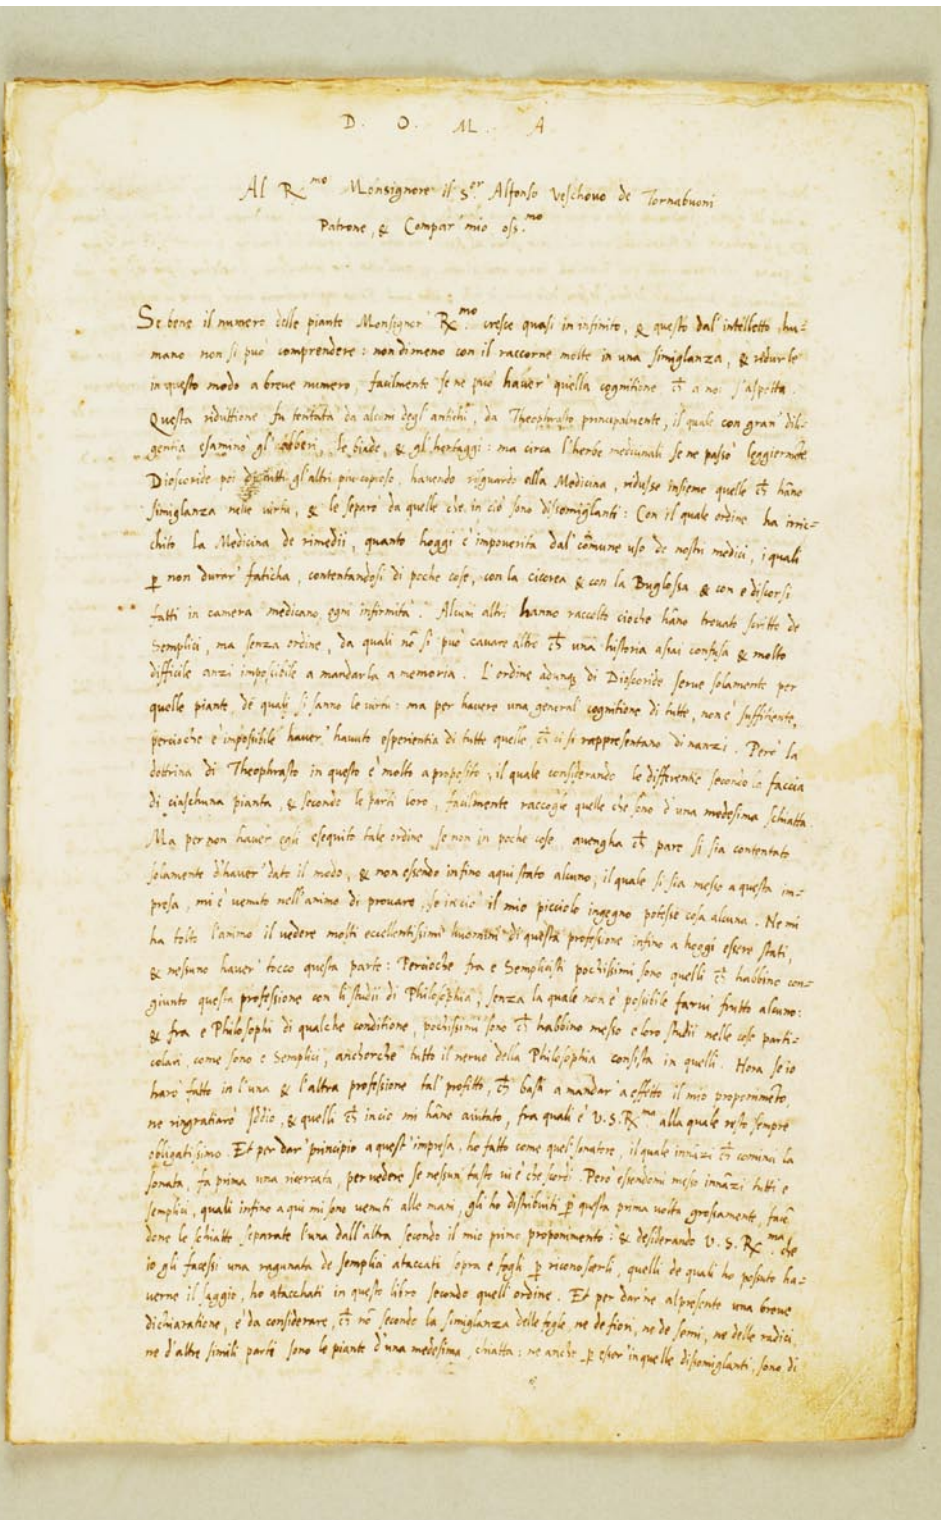 D. O. M. A
Al R.mo Monsignore il S.er Alfonso Veschovo de Tornabuoni
Patrone, & Compar' mio oss.mo
Se bene il numero delle piante Monsignor' R.mo cresce quasi in infinito, & questo dal' intelletto hu=
mano non si può comprendere: nondimeno con il raccorne molte in una simiglanza, & ridurle
in questo modo a breve numero, facilmente se ne può haver' quella cognitione ch̃ a noi s'aspetta.
Questa riduttione fu tentata da alcuni degl' antichi, da Theophrasto principalmente, il quale con gran' dili=
gentia esaminò gl' alberi, le biade, & gl' herbaggi: ma circa l'herbe medicinali se ne passò leggierm̃te
Dioscoride poi di tutti gl'altri piu copioso, havendo risguardo alla Medicina, ridusse insieme quelle ch̃ hãno
simiglanza nelle virtu, & le separò da quelle che in ciò sono dissomiglanti: Con il quale ordine ha irric=
chito la Medicina de rimedii, quanto hoggi è impoverita dal' cõmune uso de nostri medici, i quali
p̱ non durar' faticha, contentandosi di poche cose, con la cicorea & con la Buglossa & con e discorsi
fatti in camera medicano ogni infirmità. Alcuni altri hanno raccolto cioche hãno trovato scritto de
Semplici, ma senza ordine, da quali nõ si può cavare altro ch̃ una historia assai confusa & molto
difficile anzi impossibile a mandarla a memoria. L'ordine adunq̃ di Dioscoride serve solamente per
quelle piante, de quali si sanno le virtu: ma per havere una general' cognitione di tutte, non è suffitiente,
percioche è impossibile haver' havuto esperientia di tutte quelle ch̃ ci si rappresentano dinanzi. Però la
dottrina di Theophrasto in questo è molto a proposito, il quale considerando le differentie secondo la faccia
di ciaschuna pianta, & secondo le parti loro, facilmente raccogle quelle che sono d'una medesima schiatta.
Ma per non haver' egli eseguito tale ordine se non in poche cose, avengha ch̃ pare si sia contentato
solamente d'haver' dato il modo, & non essendo infino a qui stato alcuno, il quale si sia messo a questa im=
presa, mi è venuto nell'animo di provare, se in ciò il mio picciolo ingegno potesse cosa alcuna. Ne mi
ha tolto l'animo il vedere molti eccellentissimi huomini di questa professione infino a hoggi essere stati,
& nessuno haver' tocco questa parte: Percioche fra e Semplicisti pochissimi sono quelli ch̃ habbino con=
giunto questa professione con li studii di Philosophia, senza la quale non è possibile farvi frutto alcuno:
& fra e Philosophi di qualche conditione, pochissimi sono ch̃ habbino messo e loro studii nelle cose parti=
colari, come sono e Semplici, anchorche tutto il nervo della Philosophia consista in quelli. Hora se io
harò fatto in l'una & l'altra professione tal' profitto, ch̃ basti a mandar' a effetto il mio proponimẽto,
ne ringratiarò Iddio, & quelli ch̃ in ciò mi hãno aiutato, fra quali è V. S. R.ma alla quale resto sempre
obligatissimo. Et per dar' principio a quest' impresa, ho fatto come quel sonatore, il quale innãzi ch̃ cominci la
sonata, fa prima una ricercata, per vedere se nessun' tasto vi è che scordi. Però essendomi messo innãzi tutti e
semplici, quali infino a qui mi sono venuti alle mani, gli ho distribuiti p̱ questa prima volta grossamente, facẽ
done le schiatte separate l'una dall'altra secondo il mio primo proponimento: & desiderando V. S. R.ma che
io gli facessi una ragunata de semplici ataccati sopra e fogli p̱ riconoscerli, quelli de quali ho possuto ha=
verne il saggio, ho atacchati in questo libro secondo quell' ordine. Et per darne al presente una breve
dichiaratione, è da considerare, ch̃ nõ secondo la simiglanza delle fogle, ne de fiori, ne de semi, ne delle radici,
ne d'altre simili parti sono le piante d'una medesima schiatta: ne anche p̱ esser' in quelle dissomiglanti, sono di